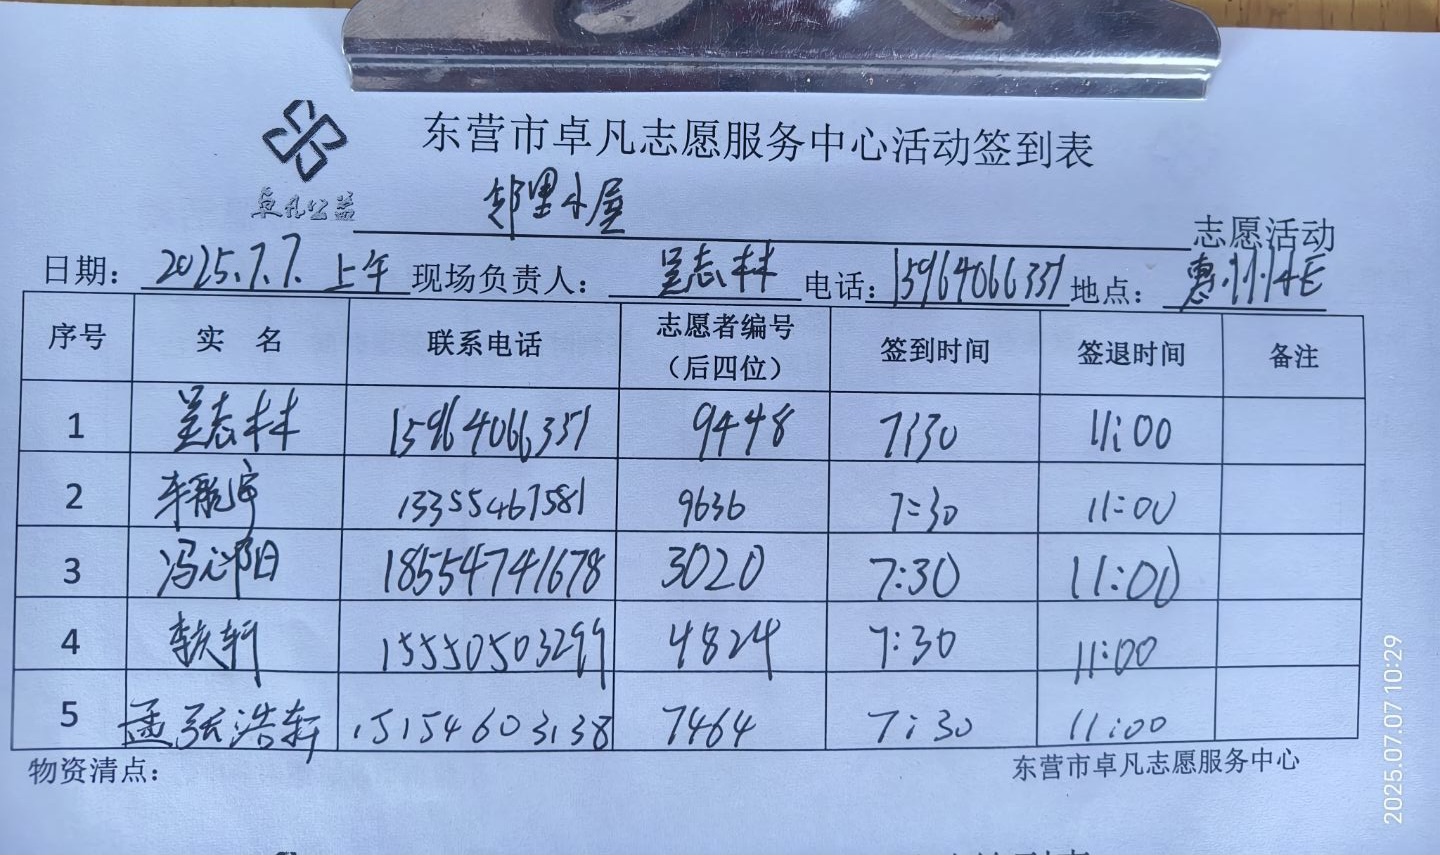 东营市卓凡志愿服务中心活动签到表
卓凡公益
邻里小屋 志愿活动
日期：2025.7.7.上午 现场负责人：吴志林 电话：15964066337 地点：惠州社区
序号 实 名 联系电话 志愿者编号（后四位） 签到时间 签退时间 备注
1 吴志林 15964066337 9448 7:30 11:00
2 13355467581 9636 7:30 11:00
3 冯沁阳 18554741678 3020 7:30 11:00
4 15550503299 4824 7:30 11:00
5 孟张浩轩 15154603138 7464 7:30 11:00
物资清点： 东营市卓凡志愿服务中心
2025.07.07 10:29